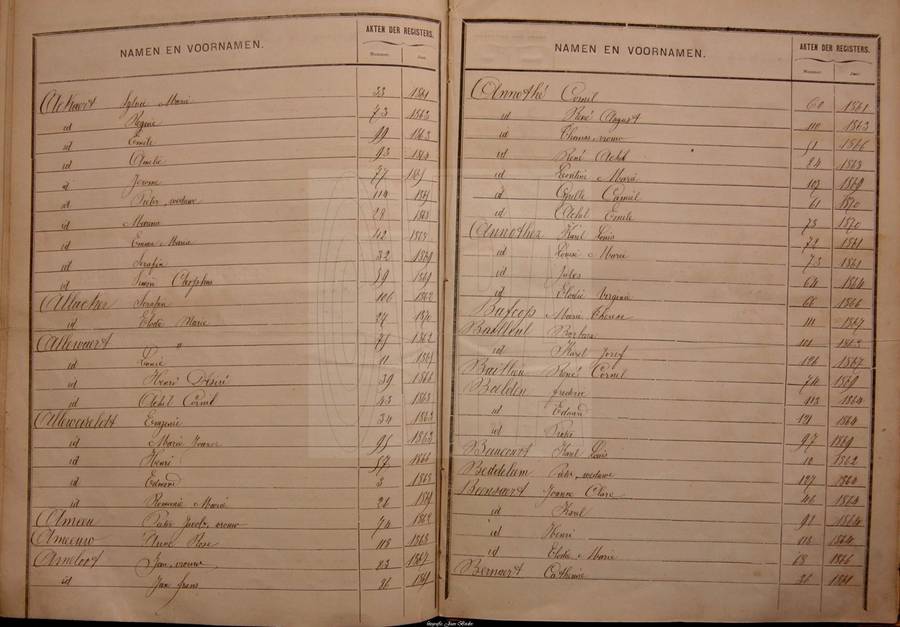 NAMEN EN VOORNAMEN. AKTEN DER REGISTERS.
Nummer. Jaar.
Ackaert Sylvie Marie 23 1861
id Regine 73 1863
id Emile 99 1863
id Amelie 93 1864
id Jerome 77
id Pieter, weduwe 114
id 28
id Emma Marie 42
id Serafin 32 1869
id Simon 89 1869
Allacker Serafin 106 1862
id Elodie Marie 24
Allewaert " 71 1862
id Louis 11 1861
id Henri Désiré 39 1866
id Achil Cornil 43 1863
Allewaereldt Eugenie 34 1863
id Marie Joanna 95 1863
id Henri 57 1861
id Edmond 3 1863
id Romanie Marie 26
Ameeu Pieter Jacob, vrouw 74 1862
Ameeuw Anne Rose 118 1863
Ameloot Jan, vrouw 23 1867
id Jan frans 26 1861
NAMEN EN VOORNAMEN. AKTEN DER REGISTERS.
Nummer. Jaar.
Annothé Cornil 60 1861
id René August 110 1863
id Thomas, vrouw 51 1866
id René Achil 24 1863
id Leontine Marie 107 1869
id Camiel 61 1870
id Achil Emile
Annothez Karel Louis 73 1870
id Louise Marie 72 1861
id Jules 73 1861
id Elodie Virginie 64 1864
Bafcop Marie Therese 66 1866
Bailleul Barbara 111 1867
id Karel Josef 101 1863
Baillieu René Cornil 126 1867
Baelden frederic 74 1869
id Edouard 113 1864
id 121 1864
Karel Louis 97 1869
Beddeleem Pieter, weduwe 10 1862
Beernaert Joanna Clara 127 1864
id Karel 46 1864
id Henri 92 1864
id Elodie Marie 113 1864
Bernaert Catherine 68 1866
36 1861
fotografie Jean Bouche